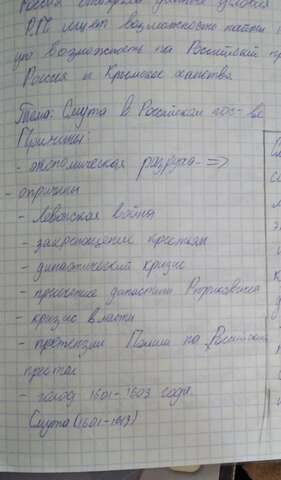 Россия
условия
Р.П. ищет возможности найти
ую возможность на Российский пр
Россия и Крымское ханства.
Тема: Смута в Российском гос-ве
Причины:
- экономическая разруха- =>
- опричнины
- Ливонская война
- закрепощение крестьян
- династический кризис
- пресечение династии Рюриковичей
- кризис власти
- претензии Польши на Российский
престол
- голод 1601-1603 года.
Смута (1601-1613)